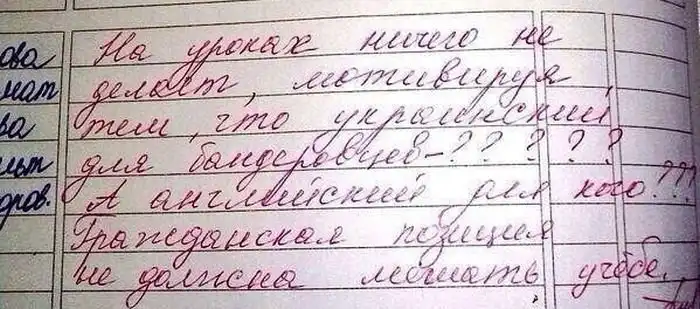 ова На уроках ничего не
мат делает, мотивируя
ва тем, что украинский
для бандеровцев-?????
А английский для кого???
Гражданская позиция
не должна мешать учёбе.